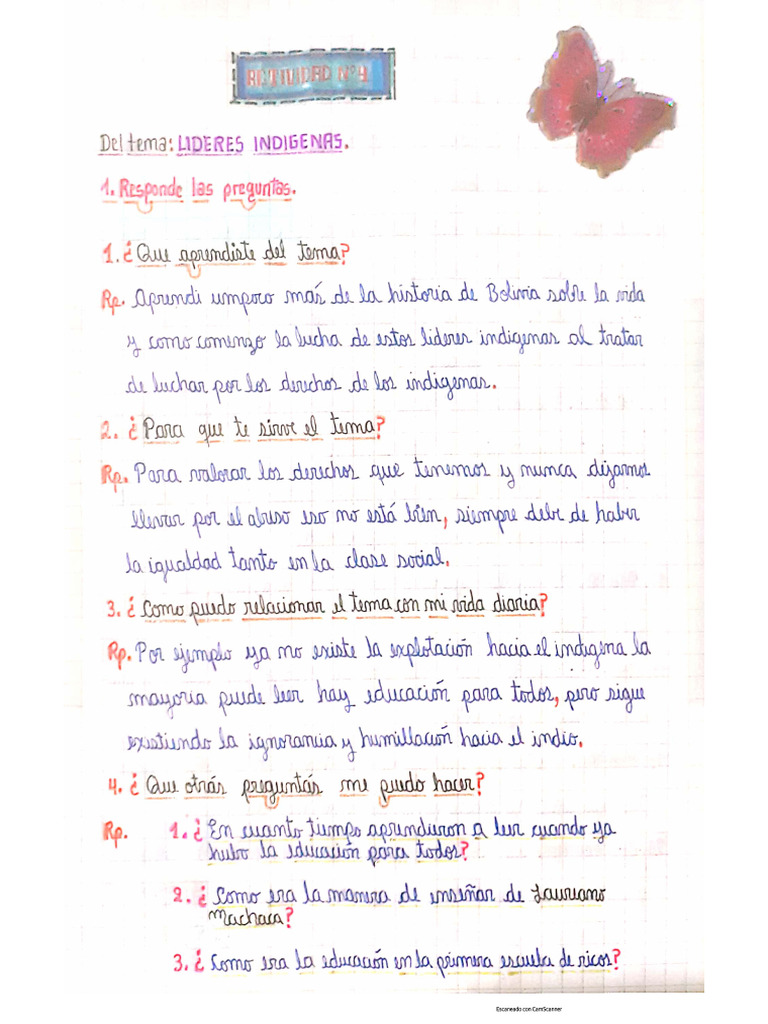 ACTIVIDAD Nº4
Del tema: LIDERES INDIGENAS.
1. Responde las preguntas.
1. ¿Que aprendiste del tema?
Rp. Aprendi umpoco más de la historia de Bolivia sobre la vida
y como comenzo la lucha de estos lideres indigenas al tratar
de luchar por los derechos de los indigenas.
2. ¿Para que te sirve el tema?
Rp. Para valorar los derechos que tenemos y nunca dejarnos
llevar por el abuso eso no está bien, siempre debe de haber
la igualdad tanto en la clase social.
3. ¿Como puedo relacionar el tema con mi vida diaria?
Rp. Por ejemplo ya no existe la explotación hacia el indigena la
mayoria puede leer hay educación para todos, pero sigue
existiendo la ignorancia y humillación hacia el indio.
4. ¿Que otrás preguntás me puedo hacer?
Rp. 1. ¿En cuanto tiempo aprendieron a leer cuando ya
hubo la educación para todos?
2. ¿Como era la manera de enseñar de Lauriano
Machaca?
3. ¿Como era la educación en la primera escuela de ricos?
Escaneado con CamScanner